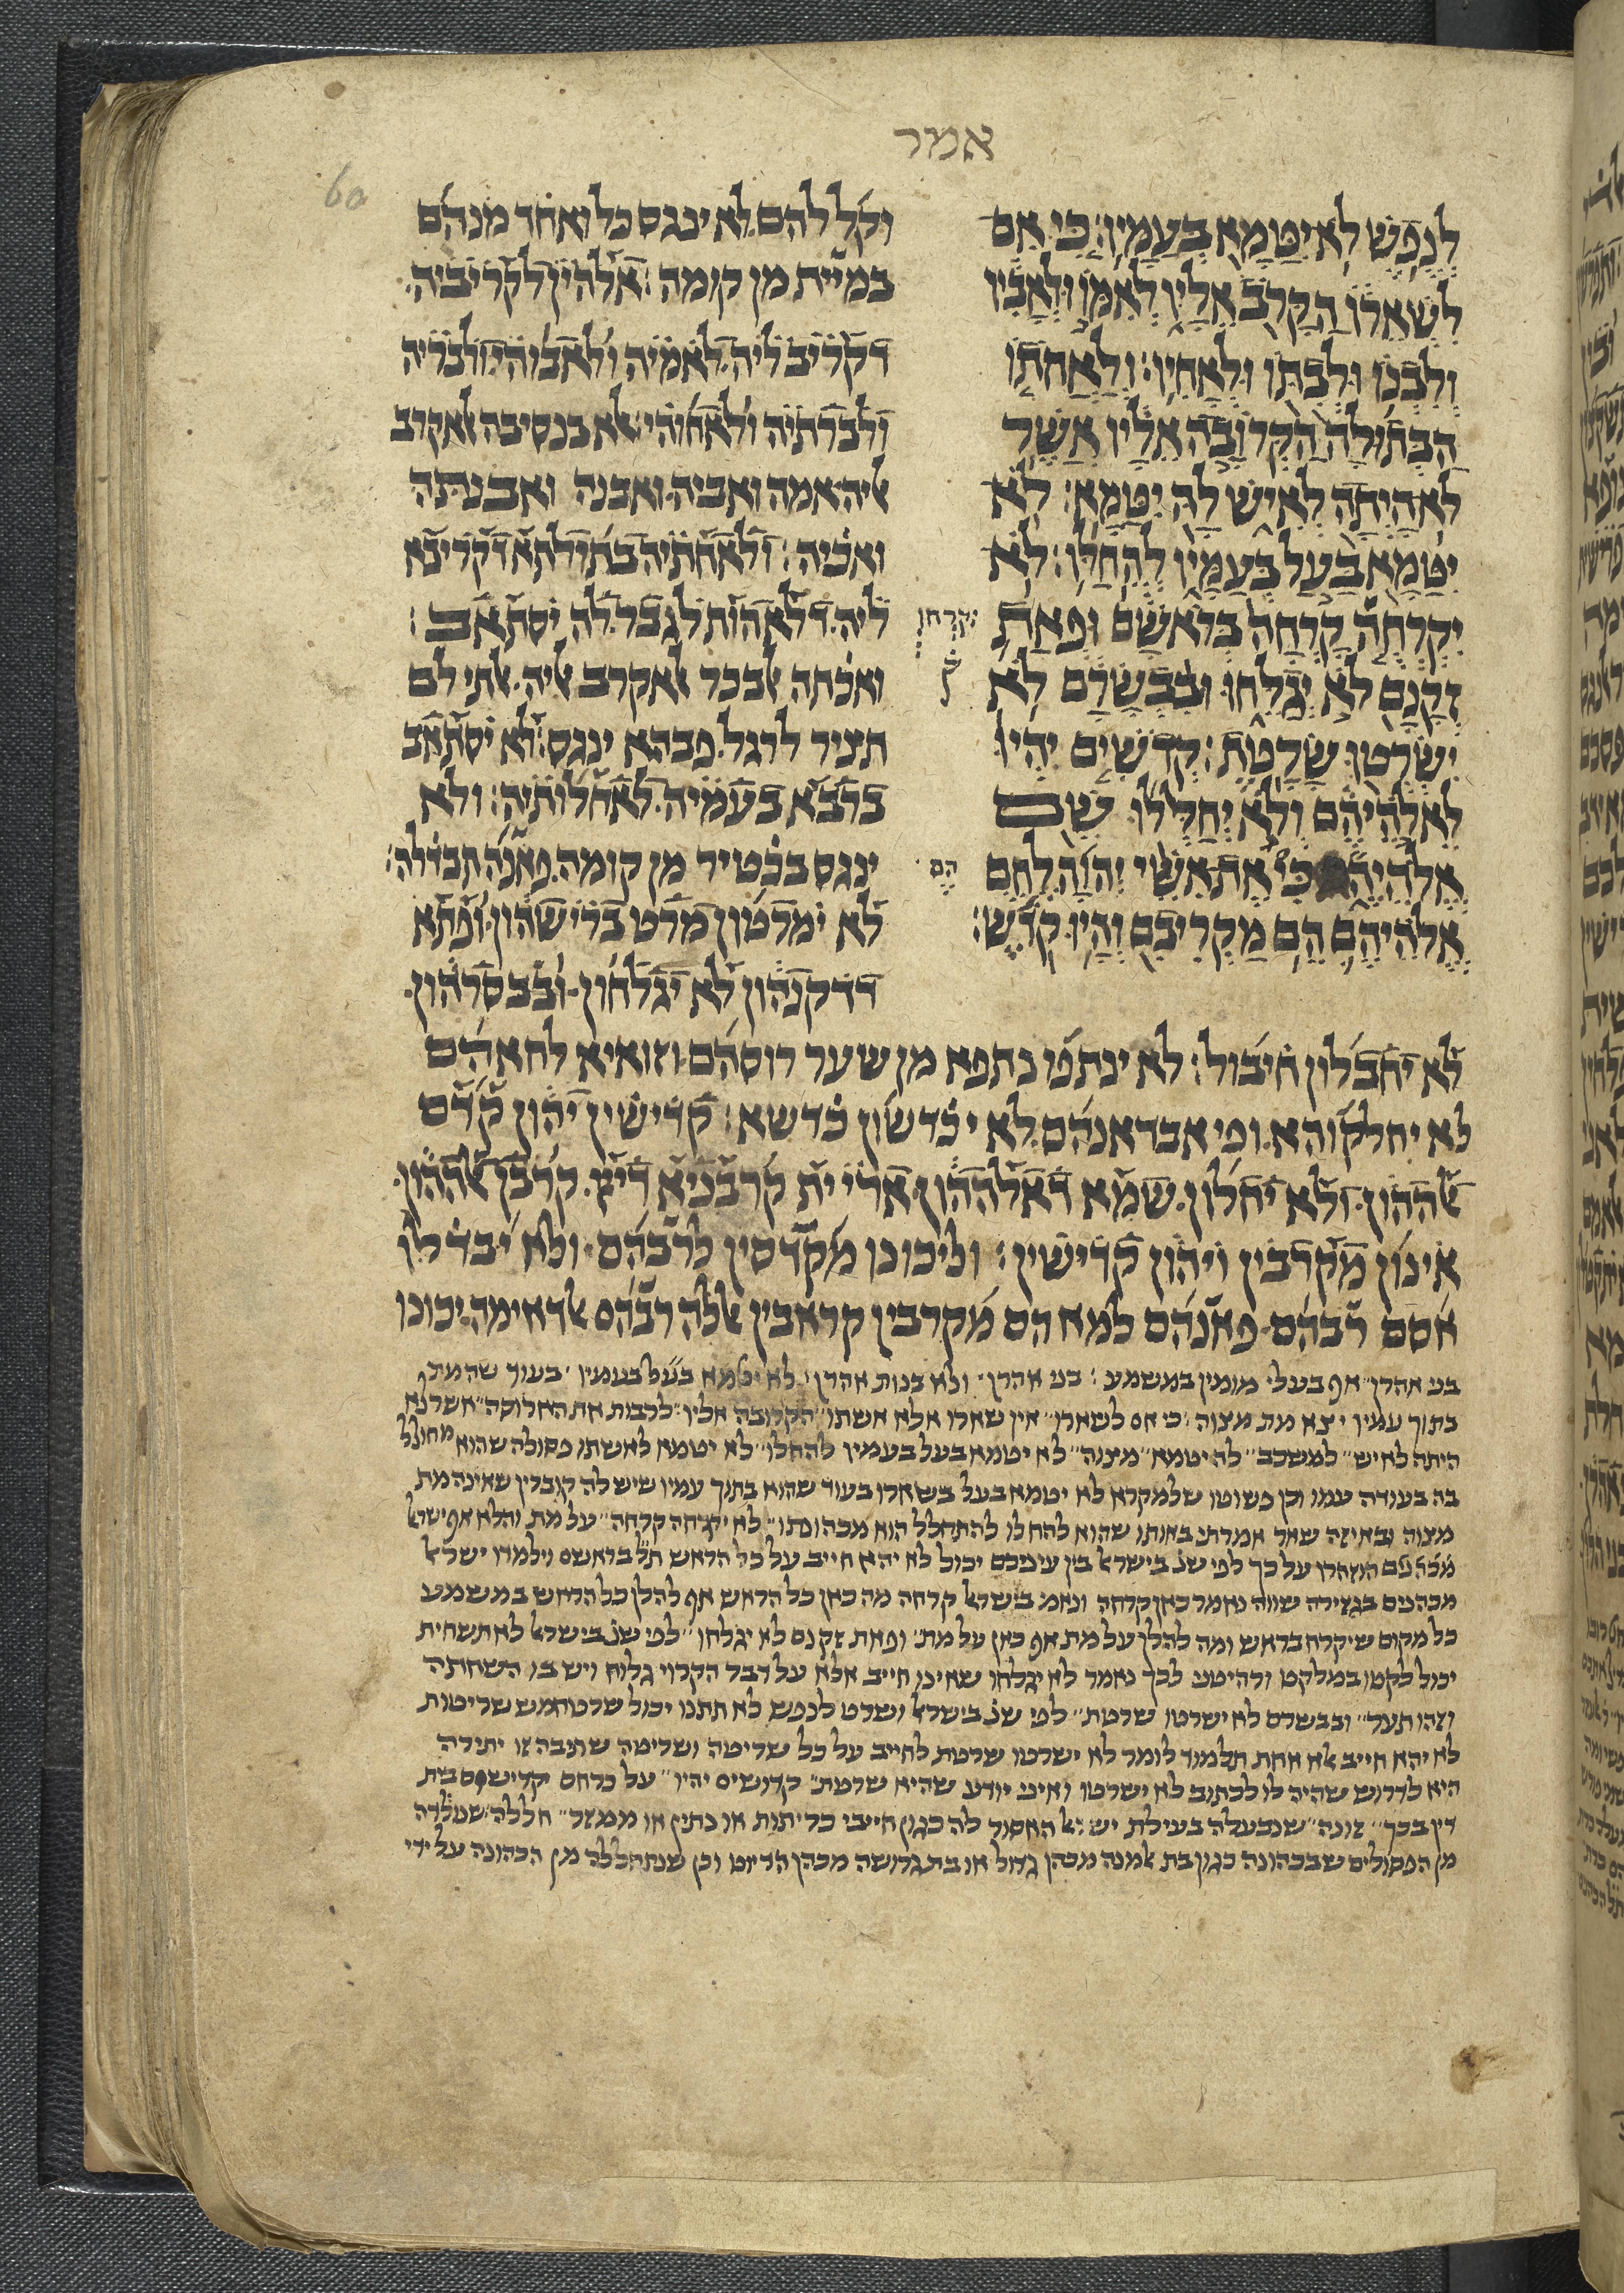 אמר
60
לנפש לא יטמא בעמיו׃ כי אם
לשארו הקרב אליו לאמו ולאביו
ולבנו ולבתו ולאחיו׃ ולאחתו
הבתולה הקרובה אליו אשר
לא היתה לאיש לה יטמא׃ לא
יטמא בעל בעמיו להחלו׃ לא
יקרחה קרחה בראשם ופאת
יקרחו
ק
זקנם לא יגלחו ובבשרם לא
ישרטו שרטת׃ קדשים יהיו
לאלהיהם ולא יחללו שם
אלהיהם כי את אשי יהוה לחם
הם
אלהיהם הם מקריבם והיו קדש׃
וקל להם לא ינגס כל ואחד מנהם
במיית מן קומה׃ אלהין לקריביה
דקריב ליה לאמיה ולאבוהי ולבריה
ולברתיה ולאחוהי׃ אלא בנסיבה אלאקרב
אליה אמה ואביה ואבנה ואבנתה
ואכיה׃ ולאחתיה בתולתא דקריבא
ליה דלא הות לגבר לה יסתאב׃
ואכתה אלבכר אלאקרב אליה אלתי לם
תציר לרגל פבהא ינגס׃ לא יסתאב
ברבא בעמיה לאחלותיה׃ ולא
ינגס בכטיר מן קומה פאנה תבדלה׃
לא ימרטון מרט ברישהון ופתא
דדקנהון לא יגלחון ובבסרהון
לא יחבלון חיבול׃ לא ינתפו נתפא מן שער רוסהם וזואיא לחאהם
לא יחלקוהא ופי אבדאנהם לא יכדשון כדשא׃ קדישין יהון קדם
אלההון ולא יחלון שמא דאלההון ארי ית קרבניא דייי קרבן אלההון
אינון מקרבין ויהון קדישין׃ וליכונו מקדסין לרבהם ולא יבדלו
אסם רבהם פאנהם למא הם מקרבין קראבין אללה רבהם אלדאימה יכונו
בני אהרן אף בעלי מומין במשמע׃ בני אהרן ולא בנות אהרן׃ לא יטמא בעל בעמיו בעוד שהמת
בתוך עמיו יצא מת מצוה׃ כי אם לשארו אין שארו אלא אשתו הקרובה אליו לרבות את הארוסה אשר לא
היתה לאיש למשכב לה יטמא מצוה לא יטמא בעל בעמיו להחלו לא יטמא לאשתו פסולה שהוא מחולל
בה בעודה עמו וכן פשוטו שלמקרא לא יטמא בעל בשארו בעוד שהוא בתוך עמיו שיש לה קוברין שאינה מת
מצוה ובאיזה שאר אמרתי באותו שהוא להחלו להתחלל הוא מכהונתו לא יקרחה קרחה על מת והלא אף ישראל
הוזהרו על כך לפי שנ בישראל בין עיניכם יכול לא יהא חייב על כל הראש תל בראשם וילמדו ישראל
מכהנים בגזירה שווה נאמר כאן קרחה ונאמ בישראל קרחה מה כאן כל הראש אף להלן כל הראש במשמע
כל מקום שיקרח בראש ומה להלן על מת אף כאן על מת ופאת זקנם לא יגלחו לפי שנ בישראל לא תשחית
יכול לקטו במלקט ורהיטני לכך נאמר לא יגלחו שאינו חייב אלא על דבר הקרוי גלוח ויש בו השחתה
וזהו תער ובבשרם לא ישרטו שרטת לפי שנ בישראל ושרט לנפש לא תתנו יכול שרט חמש שריטות
לא יהא חייב אלא אחת תלמוד לומר לא ישרטו שרטת לחייב על כל שריטה ושריטה שתיבה זו יתירה
היא לדרוש שהיה לו לכתוב לא ישרטו ואיני יודע שהיא שרטת קדושים יהיו על כרחם יקדישום בית
דין בכך זונה שנבעלה בעילת ישראל האסור לה כגון חייבי כריתות או נתין או ממזר חללה שנולדה
מן הפסולים שבכהונה כגון בת אלמנה מכהן גדול או בת גרושה מכהן הדיוט וכן שנתחללה מן הכהונה על ידי